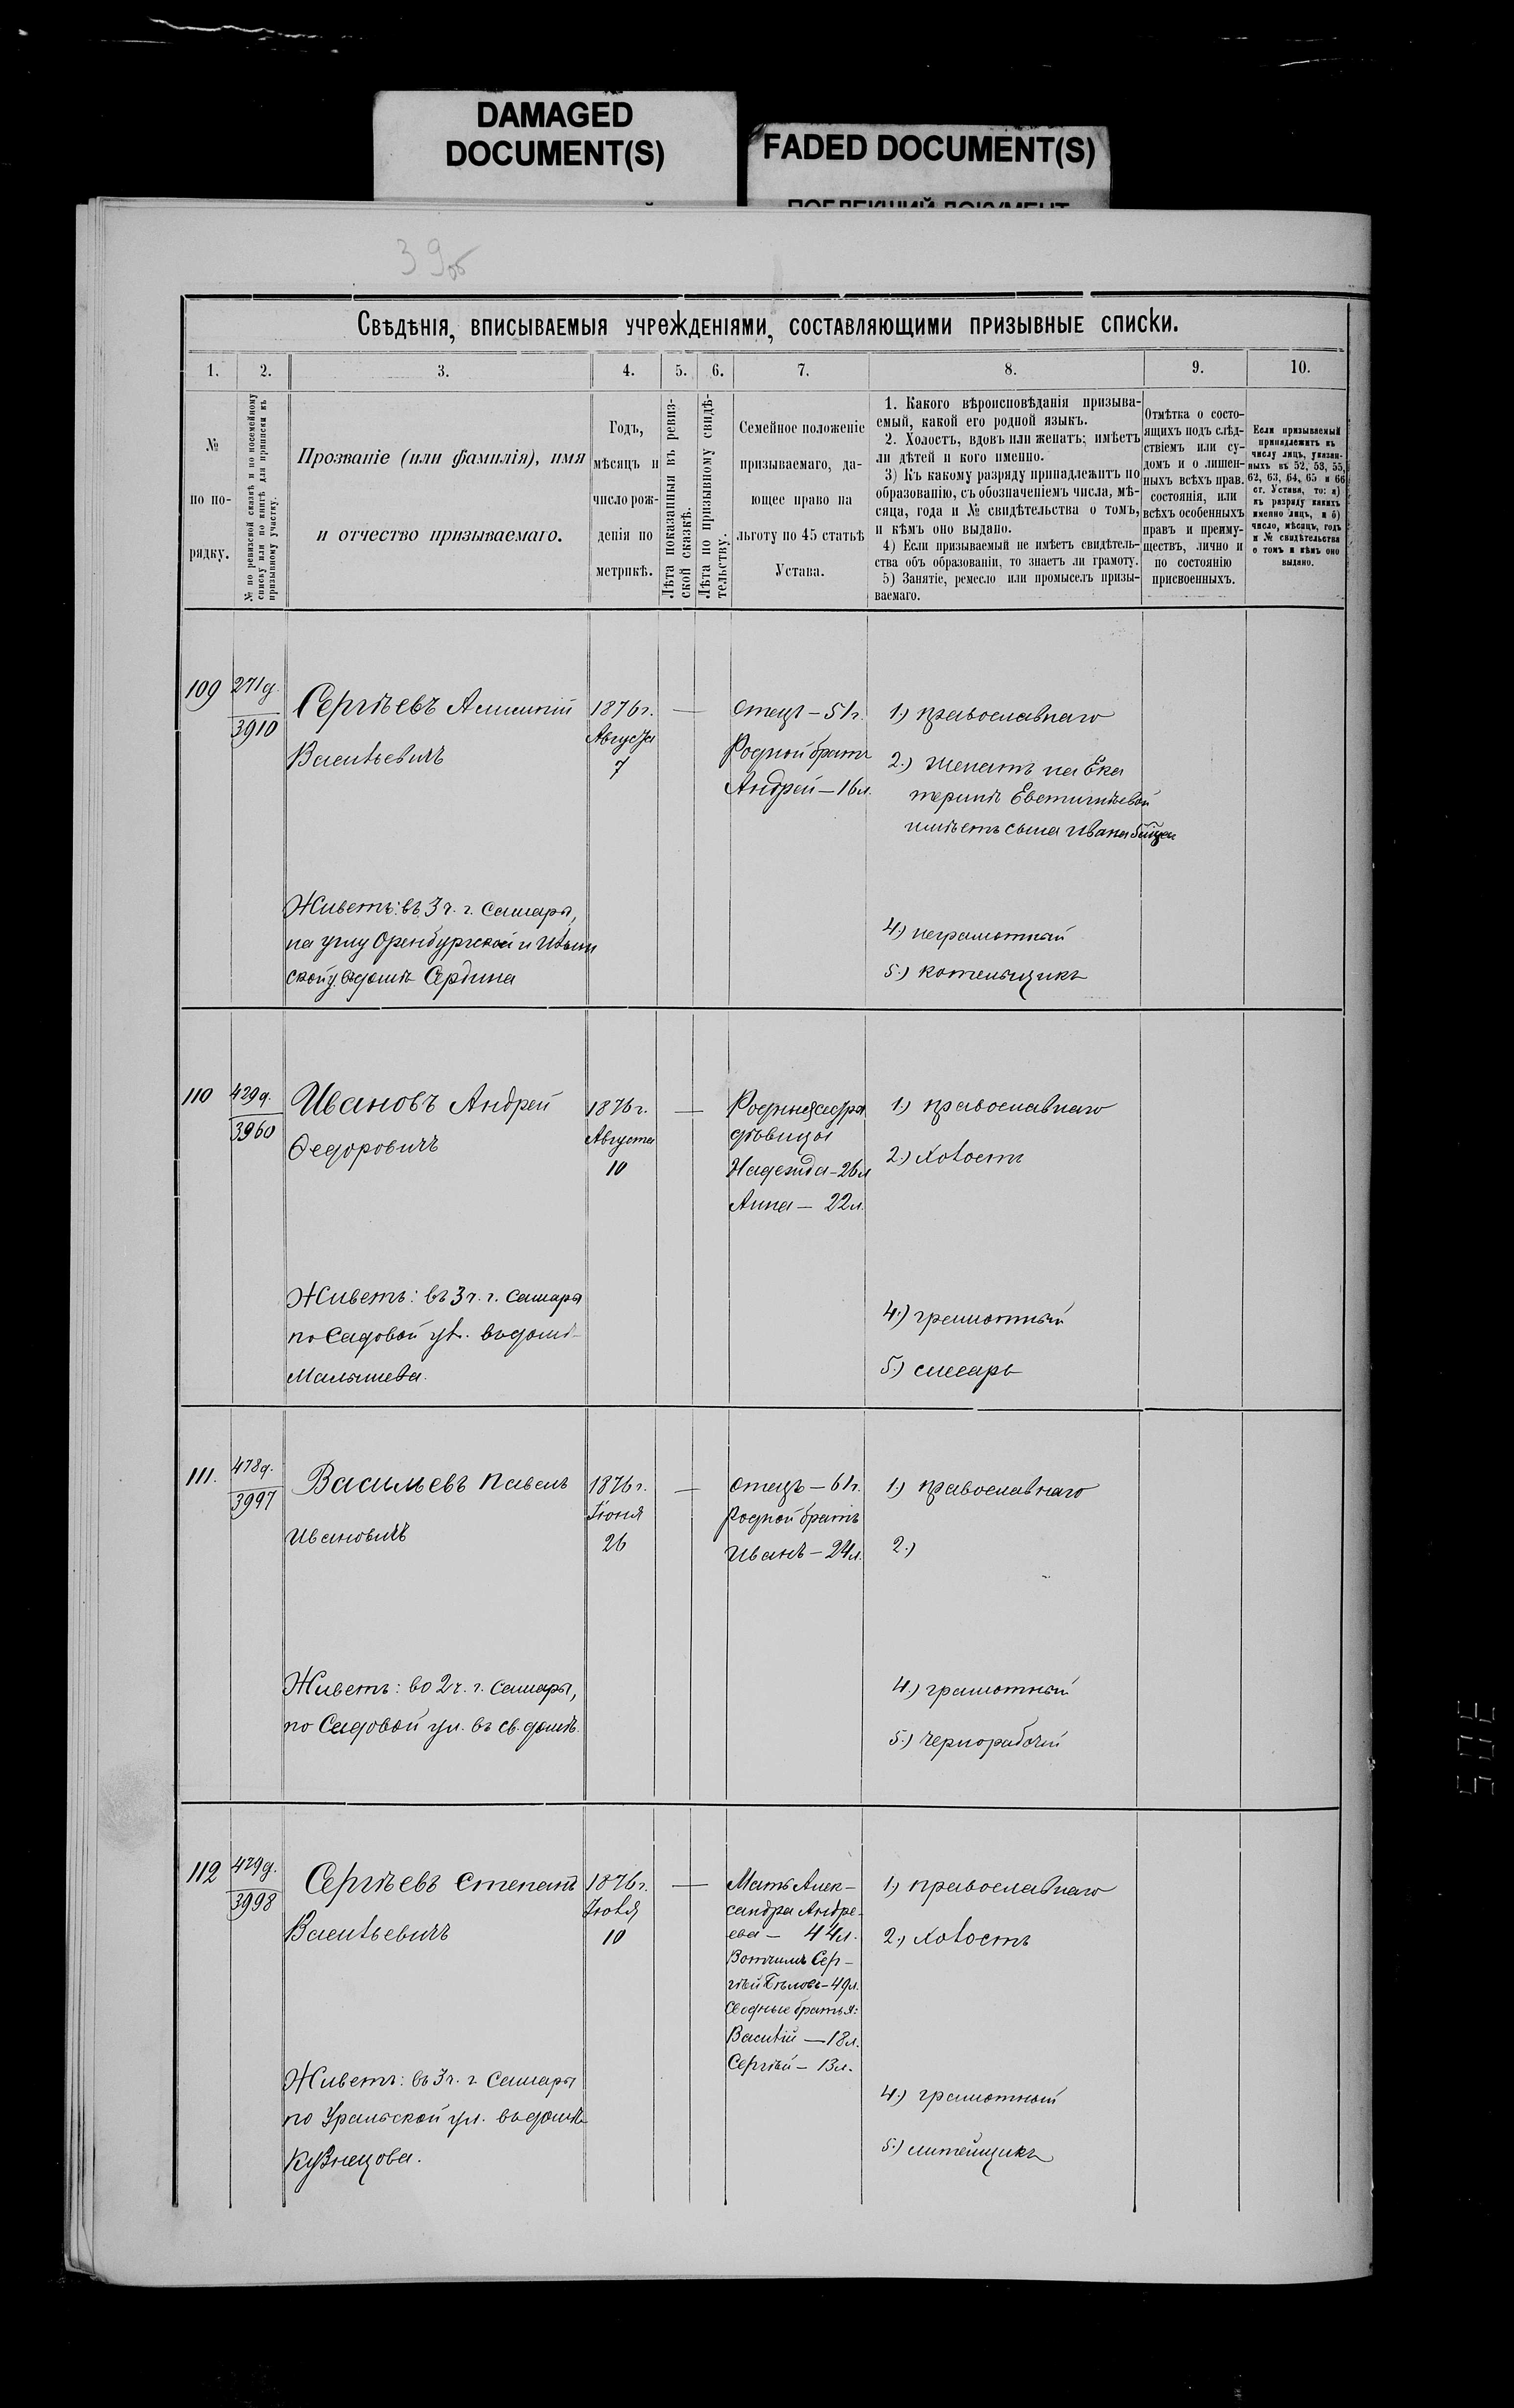 DAMAGED
DOCUMENT(S)
FADED DOCUMENT(S)
39об
Свѣдѣнія, вписываемыя учрежденіями, составляющими призывные списки.
1.
2.
3.
4.
5.
6.
7.
8.
9.
10.
№
по по-
рядку.
№ по ревизской сказкѣ и по посемейному
списку или по книгѣ для приписки къ
призывному участку.
Прозваніе (или фамилія), имя
и отчество призываемаго.
Годъ,
мѣсяцъ и
число рож-
денія по
метрикѣ.
Лѣта показанныя въ ревиз-
ской сказкѣ.
Лѣта по призывному свидѣ-
тельству.
Семейное положеніе
призываемаго, да-
ющее право на
льготу по 45 статьѣ
Устава.
1. Какого вѣроисповѣданія призыва-
емый, какой его родной языкъ.
2. Холостъ, вдовъ или женатъ; имѣетъ
ли дѣтей и кого именно.
3) Къ какому разряду принадлежитъ по
образованію, съ обозначеніемъ числа, мѣ-
сяца, года и № свидѣтельства о томъ,
и кѣмъ оно выдано.
4) Если призываемый не имѣетъ свидѣтель-
ства объ образованіи, то знаетъ ли грамоту.
5) Занятіе, ремесло или промыселъ призы-
ваемаго.
Отмѣтка о состо-
ящихъ подъ слѣд-
ствіемъ или су-
домъ и о лишен-
ныхъ всѣхъ прав.
состоянія, или
всѣхъ особенныхъ
правъ и преиму-
ществъ, лично и
по состоянію
присвоенныхъ.
Если призываемый
принадлежитъ къ
числу лицъ, указан-
ныхъ въ 52, 53, 55,
62, 63, 64, 65 и 66
ст. Устава, то: а)
къ разряду какихъ
именно лицъ, и б)
число, мѣсяцъ, годъ
и № свидѣтельства
о томъ и кѣмъ оно
выдано.
109
271д.
3910
Сергѣевъ
Васильевичъ
1876г.
Августа
7
—
отецъ — 51г.
Родной братъ
Андрей — 16л.
1) православнаго
2.) женатъ на Ека
теринѣ
имѣетъ сына Ивана
Живетъ: въ 3ч. г. Самары,
на углу Оренбургской и Ильин
ской у. въ домѣ Сердина
4.) неграмотный
5.) котельщикъ
110
429д.
3960
Ивановъ Андрей
Федоровичъ
1876г.
Августа
10
—
Родныя сестры
дѣвицы
Надежда — 26л
Анна — 22л.
1) православнаго
2.) Холостъ
Живетъ: въ 3ч. г. Самары
по Садовой ул. въ домѣ
Малышева.
4.) грамотный
5.) слесарь
111.
478д.
3997
Васильевъ Павелъ
Ивановичъ
1876г.
Іюня
26
—
отецъ — 61г.
родной братъ
Иванъ — 24л.
1) православнаго
2.)
Живетъ: во 2ч. г. Самары,
по Садовой ул. въ св. домѣ.
4.) грамотный
5.) чернорабочій
112
479д.
3998
Сергѣевъ Степанъ
Васильевичъ
1876г.
Іюля
10
—
Мать Алек-
сандра Андре-
ева — 44л.
Вотчимъ Сер-
гѣй Бѣловъ — 49л.
Сводные братья:
Василій — 18л.
Сергѣй — 13л.
1) православнаго
2.) Холостъ
Живетъ: въ 3ч. г. Самары
по Уральской ул. въ домѣ
Кузнецова.
4.) грамотный
5.) литейщикъ
305